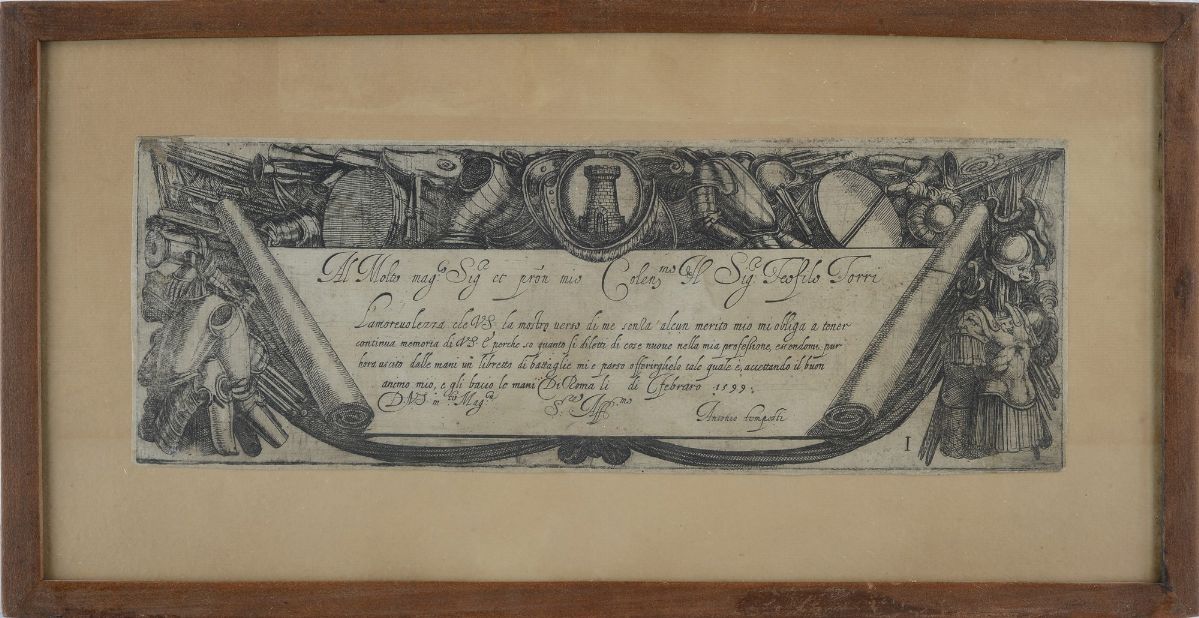 Al Molto mag.co Sig.re et prōn mio Colen.mo Il Sig.r Teofilo Torri
L'amorevolezza, che V.S. ha mostro verso di me senza alcun merito mio mi obliga a tener
continua memoria di V.S. E perche so quanto si diletti di cose nuove nella mia professione, essendome pur
hora uscito dalle mani un libretto di battaglie mi e parso offerirglielo tale quale e, accettando il buon
animo mio, e gli bacio le mani Di Roma li di Febraro 1599.
D.V.S. m.to Mag.ca S.re Aff.mo
Antonio tempesti
1